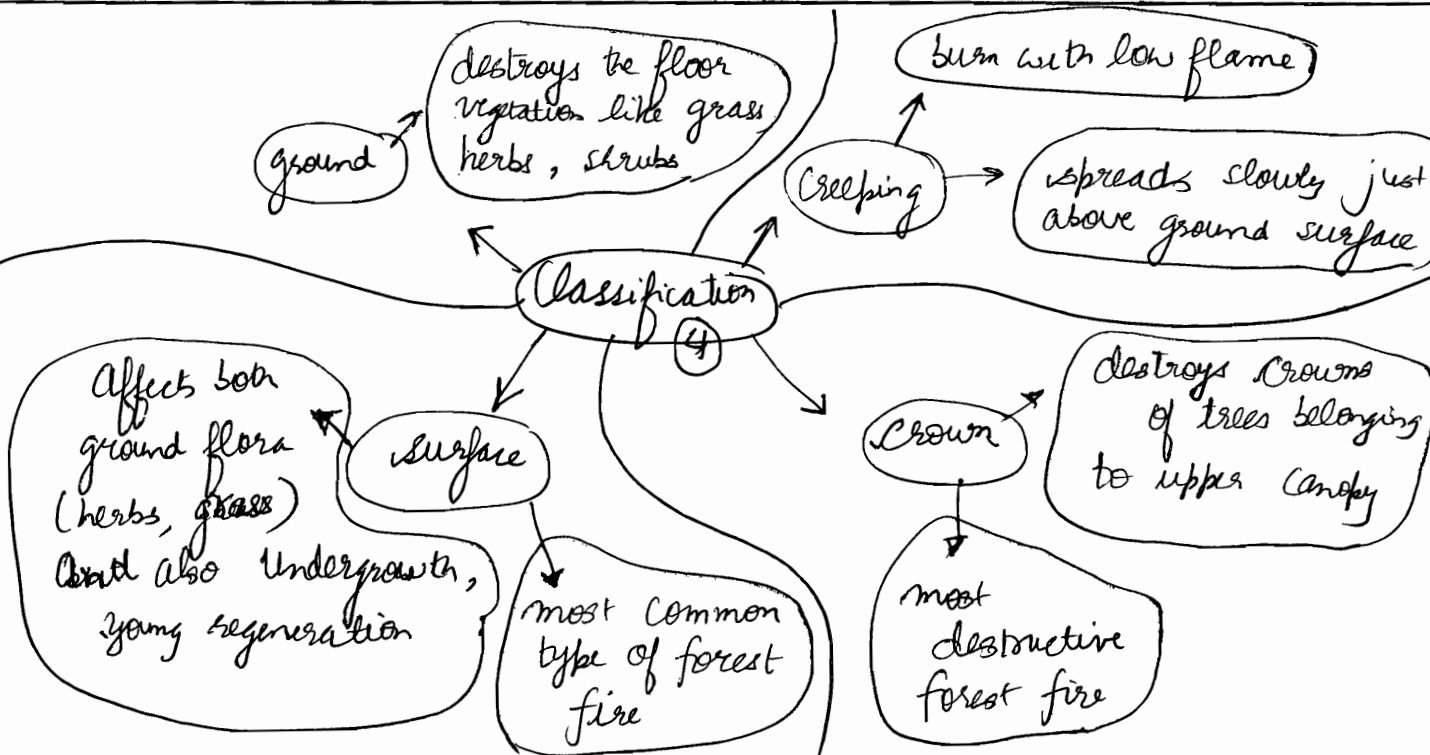 destroys the floor
vegetation like grass
herbs, shrubs
ground
burn with low flame
Creeping
spreads slowly just
above ground surface
Classification
4
Affects both
ground flora
(herbs, grass)
also Undergrowth,
young regeneration
surface
most common
type of forest
fire
crown
destroys crowns
of trees belonging
to upper canopy
most
destructive
forest fire